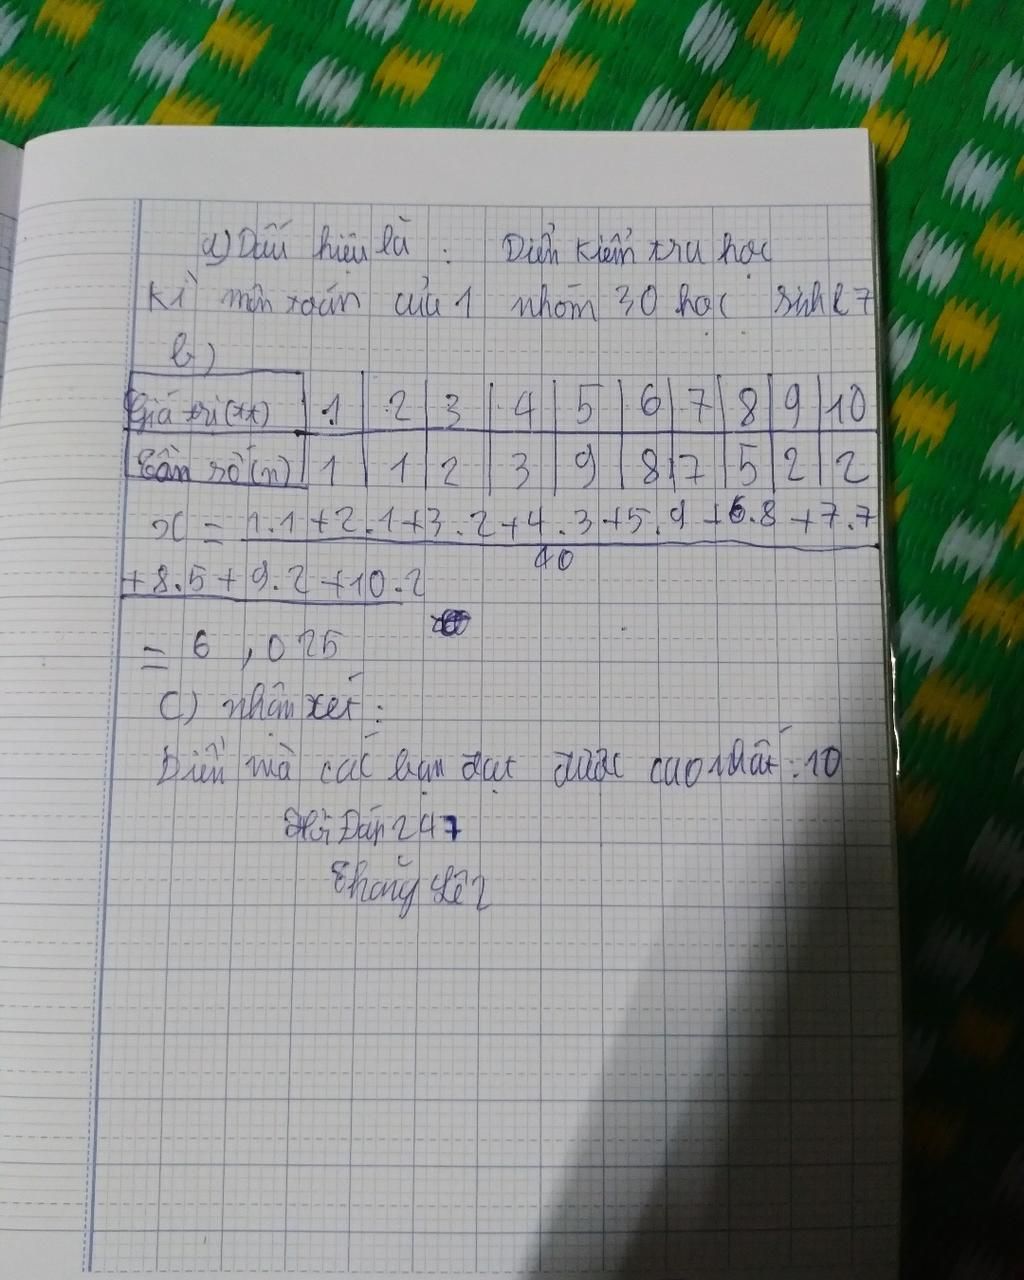 a) Dấu hiệu là : Điểm kiểm tra học
kì môn toán của 1 nhóm 30 học sinh l 7
b)
Giá trị (x) 1 2 3 4 5 6 7 8 9 10
Tần số (n) 1 1 2 3 9 8 7 5 2 2
x = 1.1 + 2.1 + 3.2 + 4.3 + 5.9 + 6.8 + 7.7
40
+ 8.5 + 9.2 + 10.2
= 6,025
C) nhận xét :
Điểm mà các bạn đạt được cao nhất : 10
Hỏi Đáp 247
Thắng Lê 2